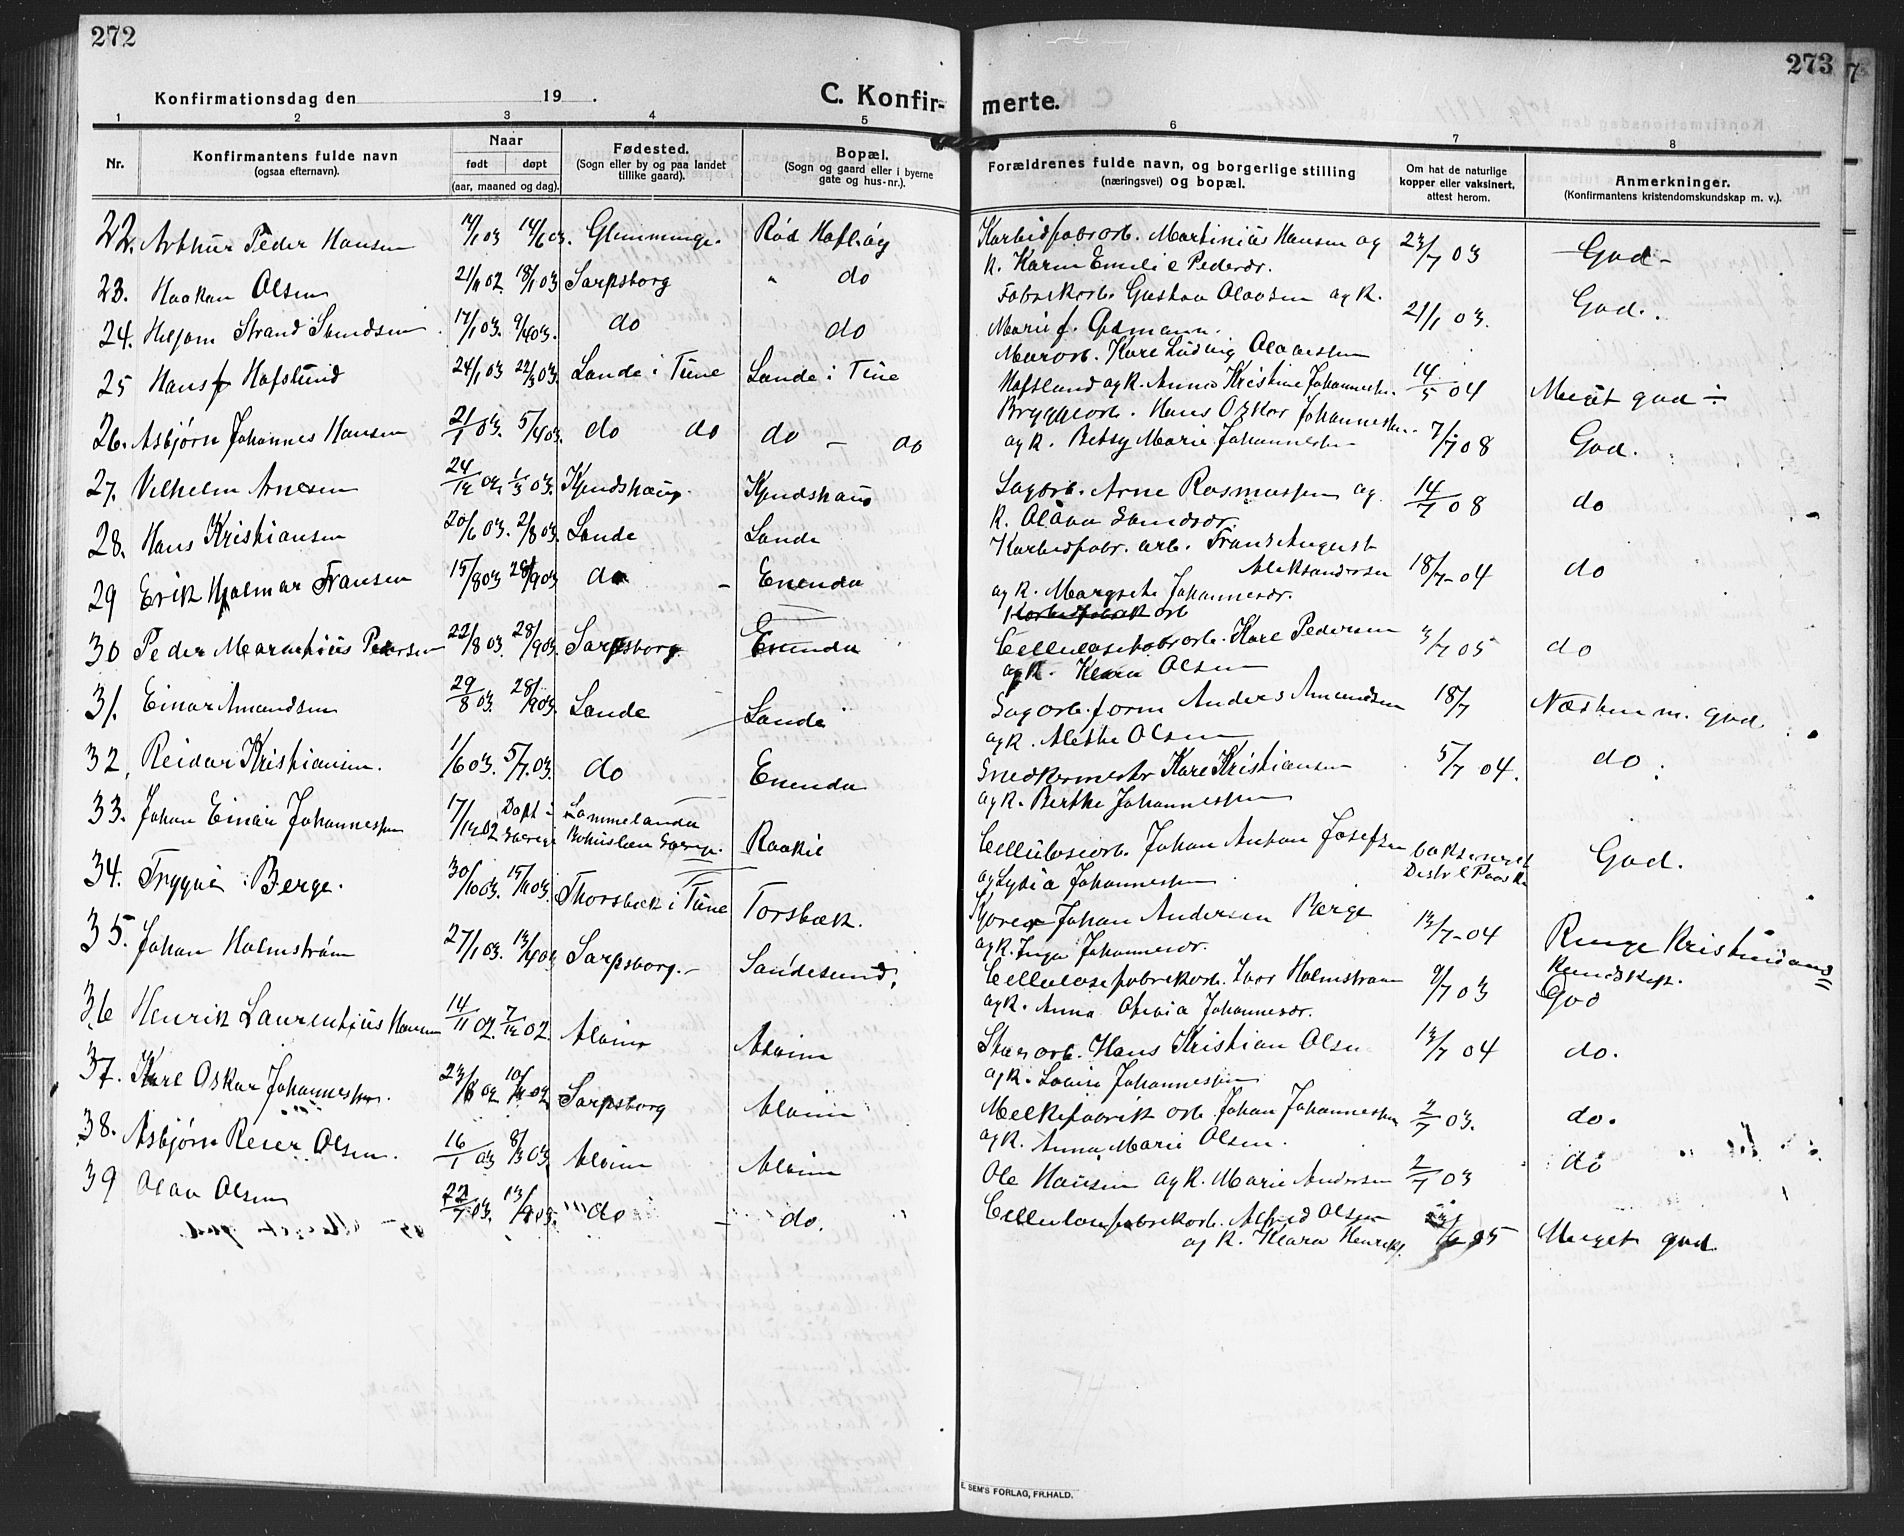 272
Konfirmationsdag den 19 .
C. Konfir-
1 2 3 4 5
Nr. Konfirmantens fulde navn (ogsaa efternavn). Naar født døpt (aar, maaned og dag). Fødested. (Sogn eller by og paa landet tillike gaard). Bopæl. (Sogn og gaard eller i byerne gate og hus-nr.).
22. Arthur Peder Hansen 14/6 03. Glemminge. Rød Hafslöy
23. Haakon Olsen 18/1 03. Sarpsborg " do
24. Strand Sundsen 17/1 03. do do
25 Hans Hafslund 24/1 03 22/3 03. Lande i Tune Lande i Tune
26. Asbjørn Johannes Hansen 21/1 03. 5/4 03. do do do – do
27. Vilhelm Arnesen 24/12 02. 1/3 03. Kyndshaug. Kyndshaug
28. Hans Kristiansen 20/6 03. 2/8 03. Lande Lande
29 Erik Hjalmar Fransen 15/8 03. do – Enenda
30 Peder Marentius Pedersen 22/8 03. 28/9 03. Sarpsborg. Enenda
31. Einar Amandsen 29/8 03. 28/9 03. Lande Lande
32, Reidar Kristiansen. 1/6 03. 5/7. 03. do Enenda
33. Johan Einar Johannessen 17/12 02 Døpt i Sverige Bohuslæn Sverige. Raakil
34. Trygve Berge. 30/10 03. Thorsbæk i Tune Torsbæk.
35. Johan Holmstrøm 27/1 03. 13/4 03 Sarpsborg. – Sandesund.
36 Henrik Laurentius Hansen 14/11 02. 7/12 02. Alvim Alvim
37. Karl Oskar Johannessen. Sarpsborg Alvim
38. Asbjørn Reier Olsen. 16/1 03 8/3 03. Alvim Alvim
39 Olav Olsen 22/7 03. do – do.
273
merte.
6 7 8
Forældrenes fulde navn, og borgerlige stilling (næringsvei) og bopæl. Om hat de naturlige kopper eller vaksinert, attest herom. Anmerkninger. (Konfirmantens kristendomskundskap m. v.).
Karbidfabrarb. Martinius Hansen og
K. Karen Emilie Pedersdr. 23/7 03 God –
Fabrikarb. Gustav Olavsen og K.
Marie f. Ødmann. 21/1 03. God.
Murarb. Karl Ludvig
Hafslund og K. Anna Kristine Johannessen. 14/5 04 Meget god ÷
Bryggearb. Hans Oskar Johannessen.
og K. Betsy Marie Johannessen 7/7 08 God.
Sagarb. Arne Rasmussen og 14/7 08 do
K. Olava
Karbidfabr. arb. Frans August
Aleksandersen 18/7 – 04 do
og K. Margrete Johannesdr.
Karbidfabrik arb
Cellulosefabrarb. Karl Pedersen 3/7 05 do
og K. Klara Olsen
Sagarb. form Anders Amundsen 18/7 Næsten m. god.
og K. Alette Olsen
Snedkermester Karl Kristiansen 5/7 04. do
og K. Berthe Johannessen
Cellulosearb. Johan Anton Josefsen God.
og Lydia Johannessen
Johan Andersen Berge 13/7 – 04 Ringe Kristendoms
og K. Inga Johannesdr. kundskap.
Cellulosefabrikarb. Ivar Holmstrøm 9/7 03 God
og K. Anna Olivia Johannesdr.
Hans Kristian Olsen 13/7 04 do.
og K. Lovise Johannessen
Melkefabrik arb. Johan Johannessen 2/7 03. do.
og K. Anna Marie Olsen.
Ole Hansen og K. Marie Andersen 2/7 03 do
Cellulosefabrikarb. Alfred Olsen
og K. Klara Meget god
E. SEM'S FORLAG, FR.HALD.